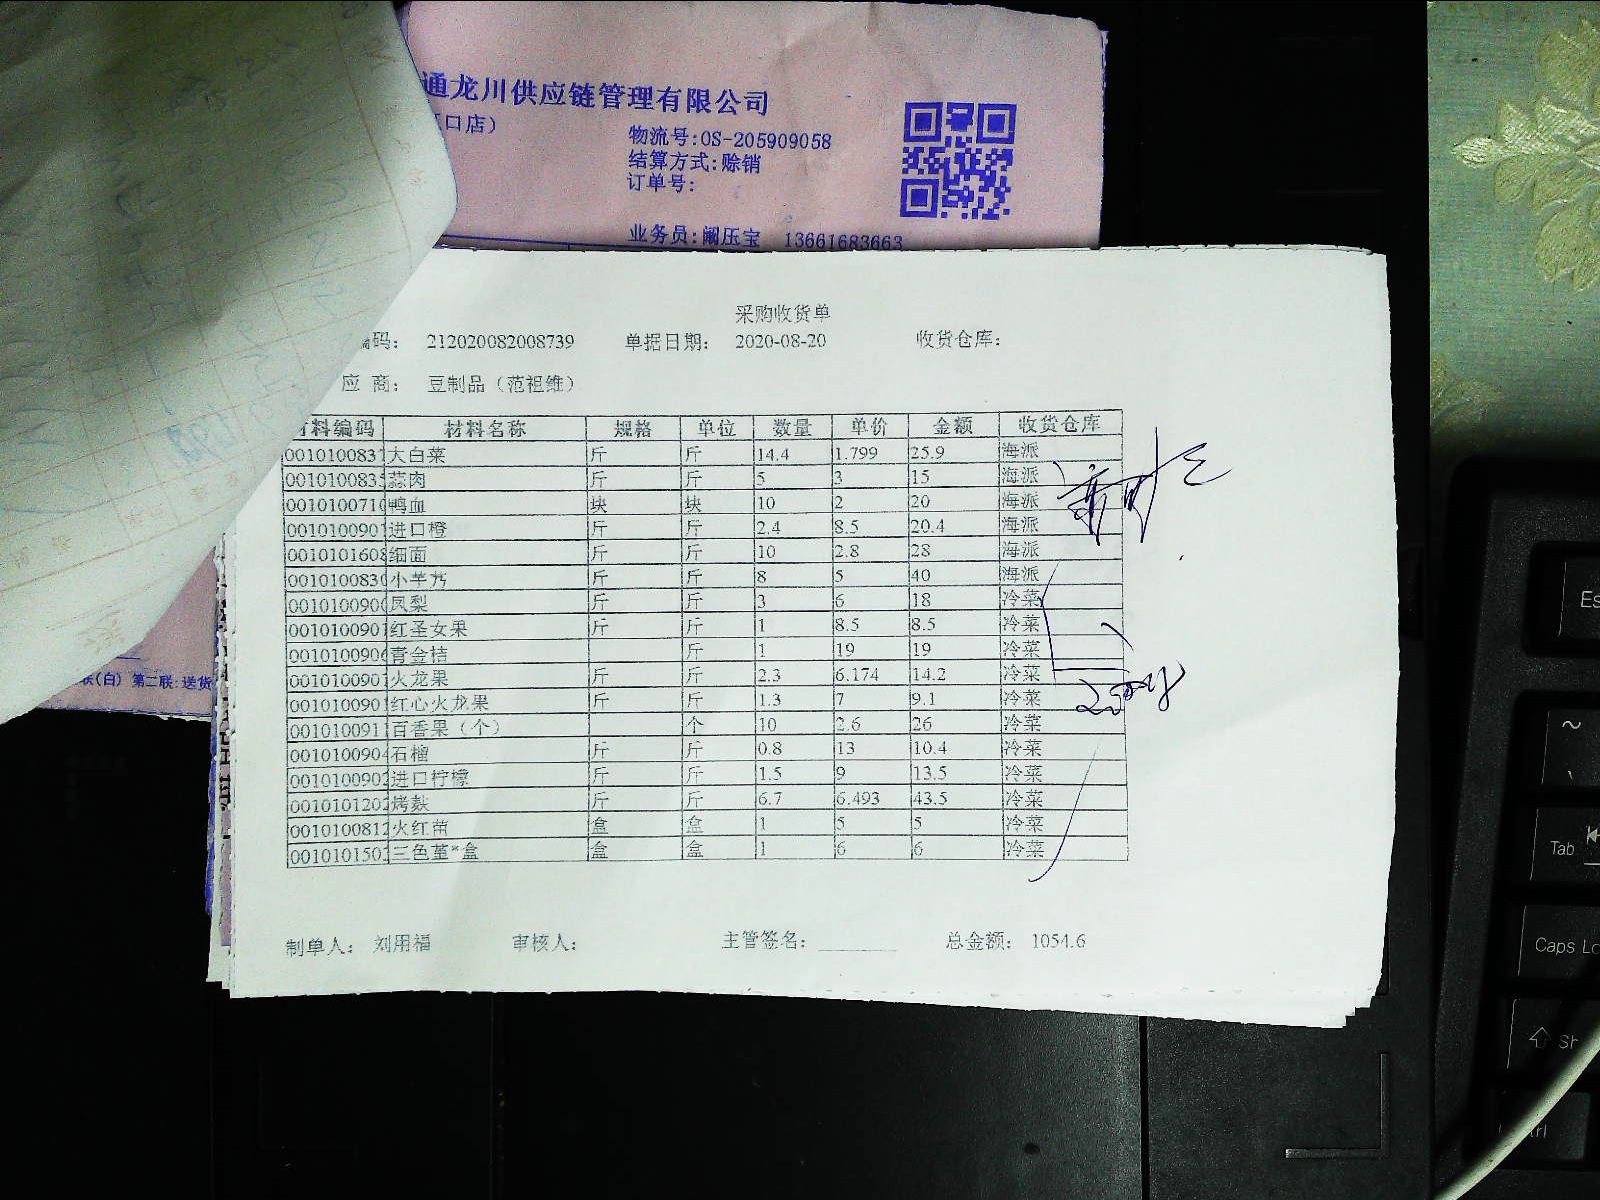 通龙川供应链管理有限公司
口店）
物流号:OS-205909058
结算方式:赊销
订单号:
业务员:阚压宝 13661683663
采购收货单
编码： 212020082008739 单据日期： 2020-08-20 收货仓库：
应 商： 豆制品（范祖维）
材料编码 材料名称 规格 单位 数量 单价 金额 收货仓库
001010083 大白菜 斤 斤 14.4 1.799 25.9 海派
001010083 蒜肉 斤 斤 5 3 15 海派
001010071 鸭血 块 块 10 2 20 海派
001010090 进口橙 斤 斤 2.4 8.5 20.4 海派
001010160 细面 斤 斤 10 2.8 28 海派
001010083 小芋艿 斤 斤 8 5 40 海派
001010090 凤梨 斤 斤 3 6 18 冷菜
001010090 红圣女果 斤 斤 1 8.5 8.5 冷菜
001010090 青金桔 斤 1 19 19 冷菜
001010090 火龙果 斤 斤 2.3 6.174 14.2 冷菜
001010090 红心火龙果 斤 斤 1.3 7 9.1 冷菜
001010091 百香果（个） 个 10 2.6 26 冷菜
001010090 石榴 斤 斤 0.8 13 10.4 冷菜
001010090 进口柠檬 斤 斤 1.5 9 13.5 冷菜
001010120 烤麸 斤 斤 6.7 6.493 43.5 冷菜
001010081 火红苗 盒 盒 1 5 5 冷菜
001010150 三色堇*盒 盒 盒 1 6 6 冷菜
制单人： 刘用福 审核人： 主管签名： 总金额： 1054.6
联(白) 第二联:送货
Es
~
Tab
Caps Lo
Sh
trl